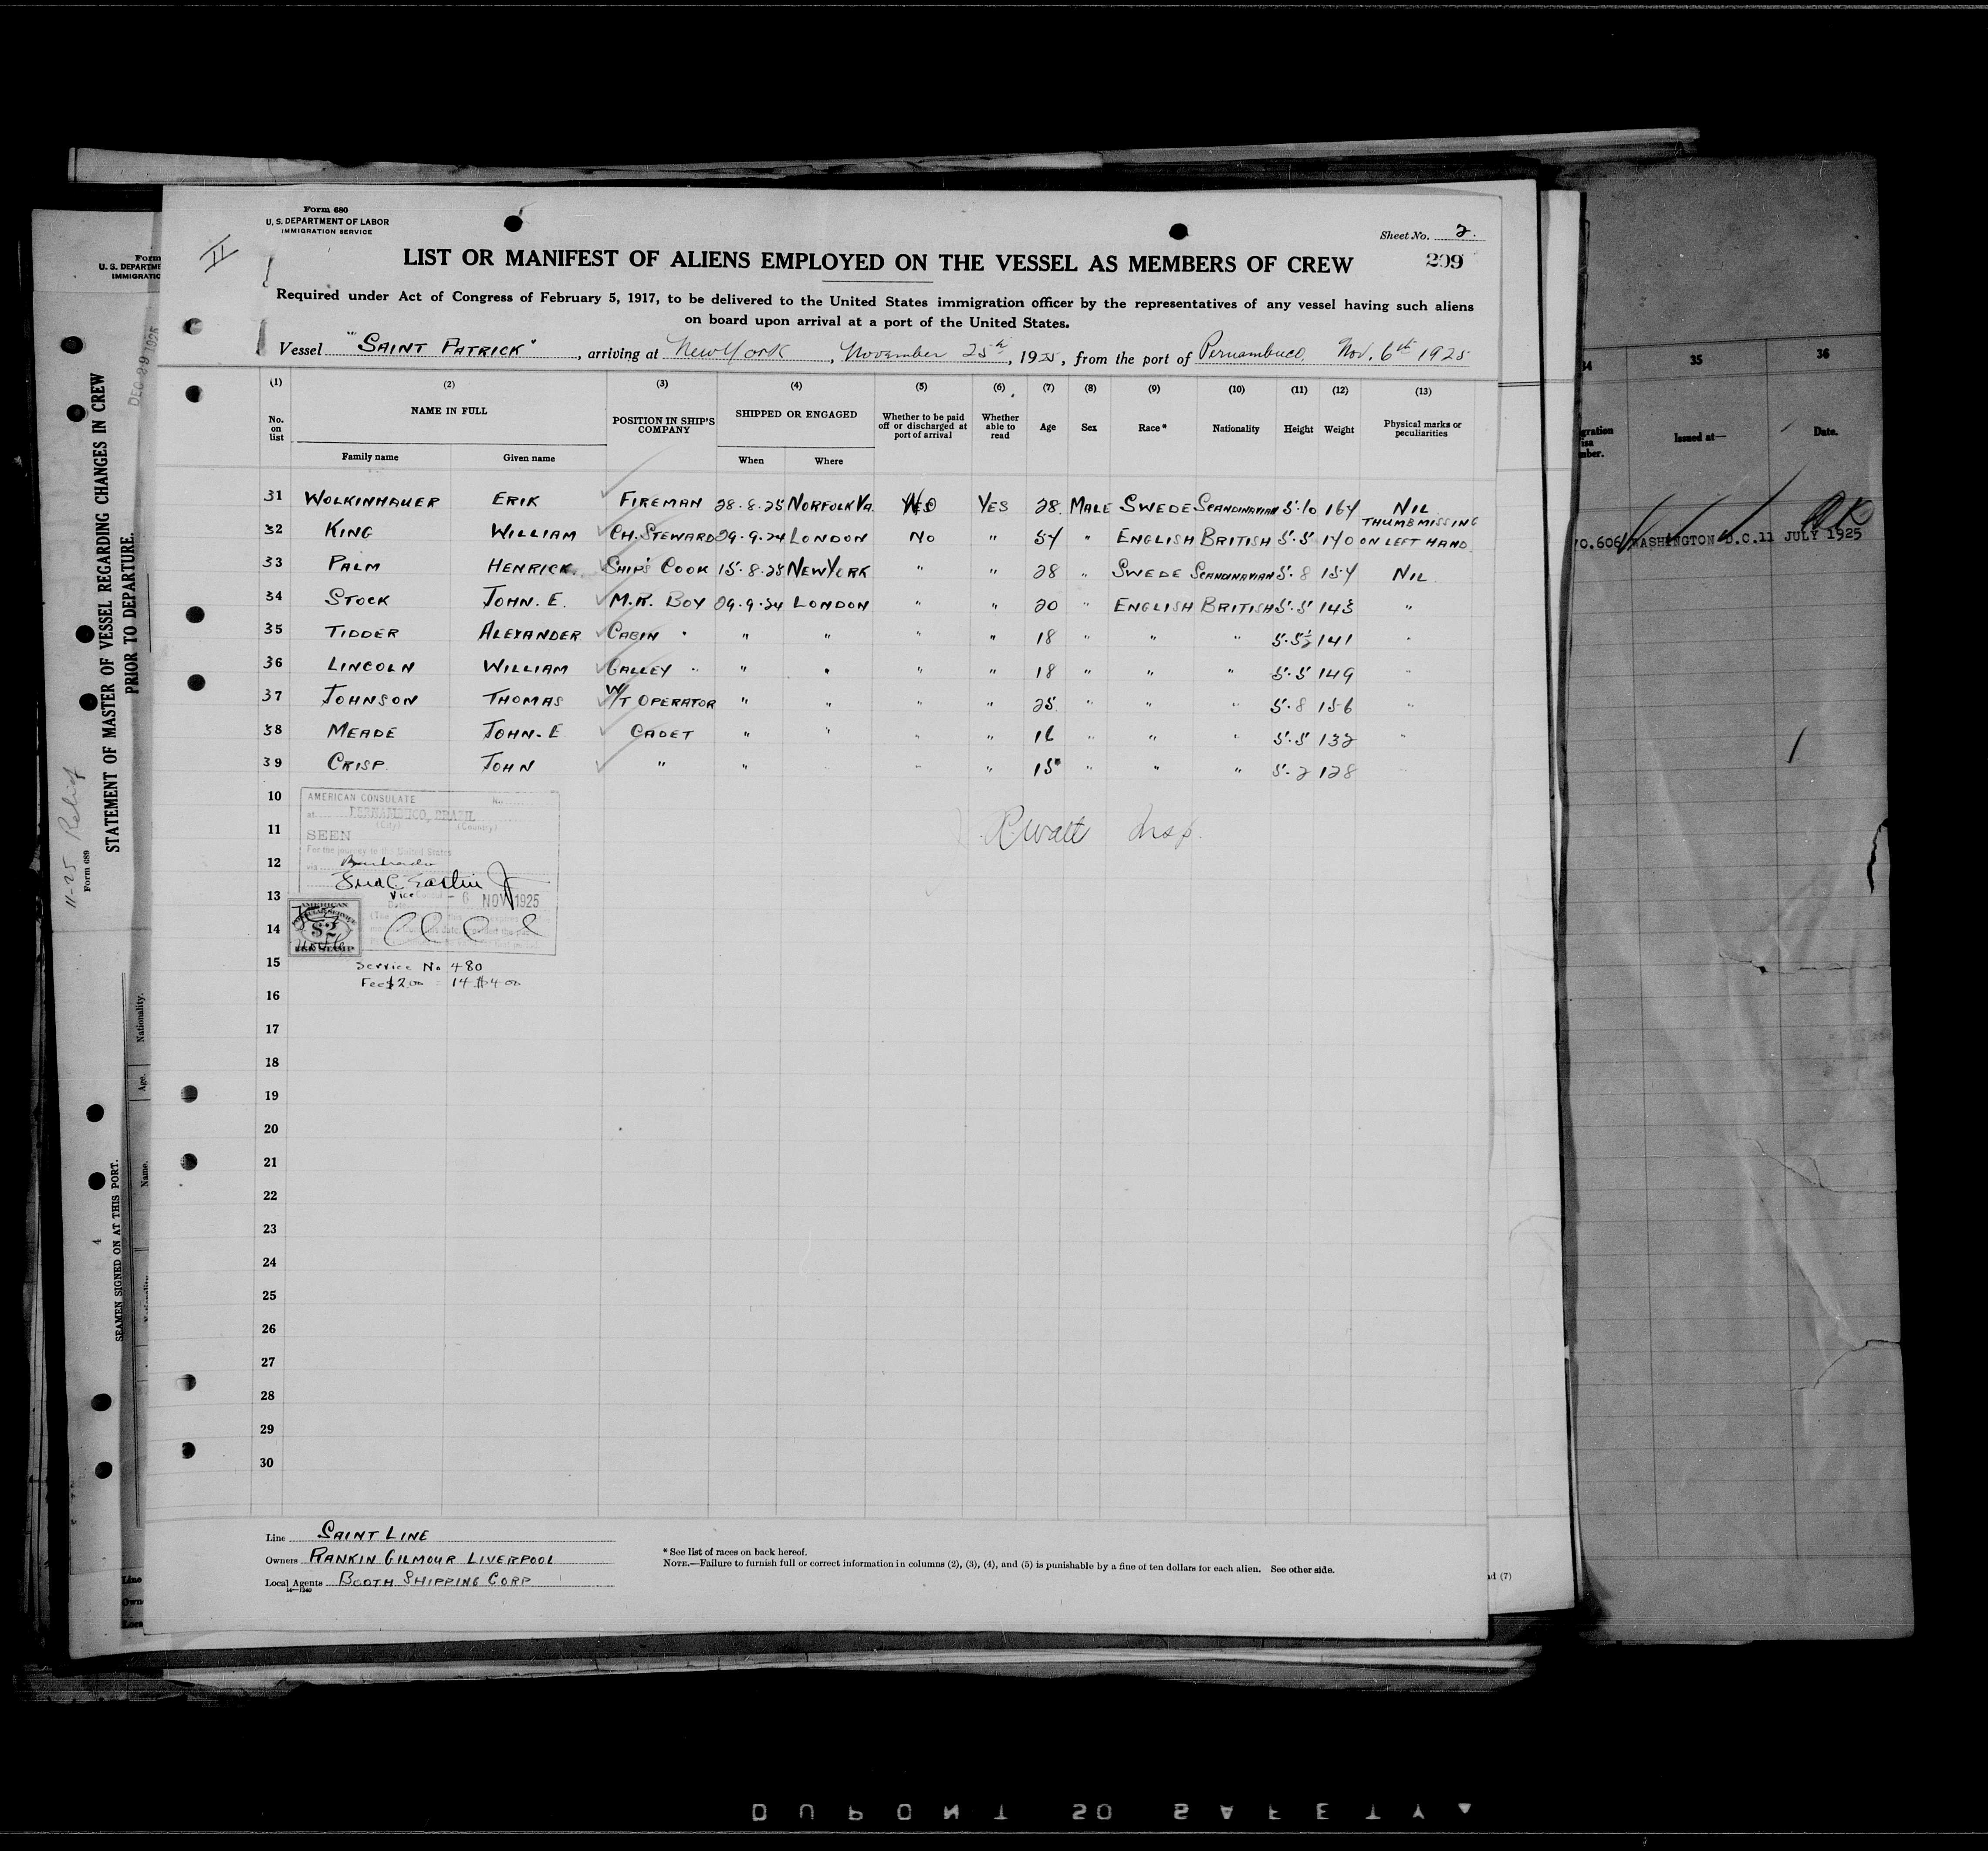 Form 680
U. S. DEPARTMENT OF LABOR
IMMIGRATION SERVICE
II
Sheet No. 2.
LIST OR MANIFEST OF ALIENS EMPLOYED ON THE VESSEL AS MEMBERS OF CREW
299
Required under Act of Congress of February 5, 1917, to be delivered to the United States immigration officer by the representatives of any vessel having such aliens
on board upon arrival at a port of the United States.
Vessel "SAINT PATRICK", arriving at New York, November 25th, 1925, from the port of Pernambuco. Nov. 6th 1925
(1) (2) (3) (4) (5) (6) (7) (8) (9) (10) (11) (12) (13)
No. on list NAME IN FULL POSITION IN SHIP'S COMPANY SHIPPED OR ENGAGED Whether to be paid off or discharged at port of arrival Whether able to read Age Sex Race* Nationality Height Weight Physical marks or peculiarities
Family name Given name When Where
31 WOLKINHAUER ERIK FIREMAN 28.8.25 NORFOLK VA. NO YES 28. MALE SWEDE SCANDINAVIAN 5.10 164 NIL
32 KING WILLIAM CH. STEWARD 29.9.24 LONDON NO " 54 " ENGLISH BRITISH 5.5 140 THUMB MISSING ON LEFT HAND
33 PALM HENRICK. SHIP'S COOK 15.8.25 NEW YORK " " 28 " SWEDE SCANDINAVIAN 5.8 154 NIL
34 STOCK JOHN. E. M.R. BOY 29.9.24 LONDON " " 20 " ENGLISH BRITISH 5.5 143 "
35 TIDDER ALEXANDER CABIN " " " " " 18 " " " 5.5½ 141 "
36 LINCOLN WILLIAM GALLEY " " " " " 18 " " " 5.5 149 "
37 JOHNSON THOMAS W/T OPERATOR " " " " 25 " " " 5.8 156 "
38 MEADE JOHN. E CADET " " " " 16 " " " 5.5 132 "
39 CRISP. JOHN " " " " " 15 " " " 5.2 128 "
10
11
12
13
14
15
16
17
18
19
20
21
22
23
24
25
26
27
28
29
30
AMERICAN CONSULATE No.
at PERNAMBUCO, BRAZIL
(City) (Country)
SEEN
For the journey to the United States
via Barbados
Vice
- 6 NOV 1925
AMERICAN
$2
FEE STAMP
Service No 480
Fee $2.00 = 14$400
Insp.
Line SAINT LINE
Owners RANKIN GILMOUR LIVERPOOL
Local Agents BOOTH SHIPPING CORP
14—1240
* See list of races on back hereof.
NOTE.—Failure to furnish full or correct information in columns (2), (3), (4), and (5) is punishable by a fine of ten dollars for each alien. See other side.
Form
U. S. DEPARTME
IMMIGRATIO
DEC 29 1925
STATEMENT OF MASTER OF VESSEL REGARDING CHANGES IN CREW
PRIOR TO DEPARTURE.
11-25 Relief
Form 689
SEAMEN SIGNED ON AT THIS PORT.
4
Nationality.
Age.
Name.
Line
Own
Loca
34 35 36
gration
isa
mber.
Issued at—
Date.
OK
70.606 WASHINGTON D.C. 11 JULY 1925
d (7)
DUPONT 50 SAFETY